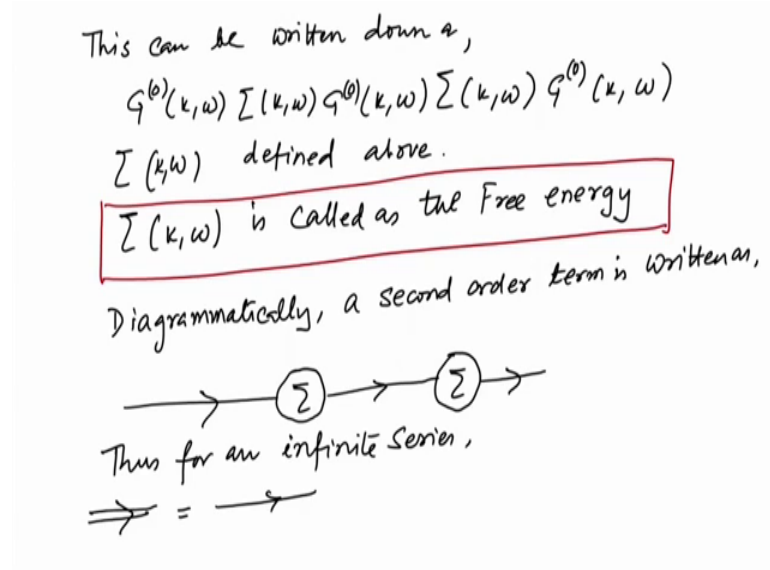 This can be written down as,
G⁽⁰⁾(k,ω) Σ(k,ω) G⁽⁰⁾(k,ω) Σ(k,ω) G⁽⁰⁾(k,ω)
Σ(k,ω) defined above.
Σ(k,ω) is called as the Free energy
Diagrammatically, a second order term is written as,
Σ Σ
Thus for an infinite series,
⇒ = →